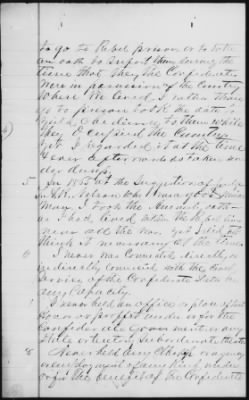 to go to Rebel prison or to take
an oath to support them during the
time that they the Confederates
were in possession of the Country
where we lived I rather than
go to prison took the oath &
yield obedience to them while
they occupied the Country
yet I regarded it at the time
& ever afterwards as taken un
der duress
5 In 1865 at the suggestion of Judge
Nelson who
May I took the Amnesty oath
as I had lived within the Rebel lines
near all the war yet I did not
think it necessary at the time
6 I never was connected directly or
indirectly connected with the
Service of the Confederate States in
any capacity
7 I never held an office or place of trust
honor or profit under or for the
Confederate Government or any
State or Subordinate thereto
8 Never held any or agency
or employment of any kind under
or for the benefit of the Confederates